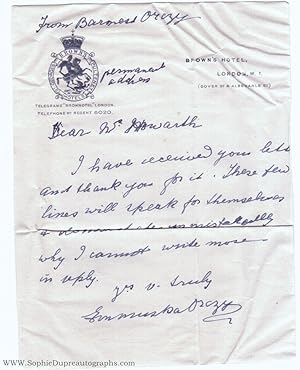 From Baroness Orczy
BROWN'S
HOTEL
permanent
address
BROWN'S HOTEL,
LONDON, W. 1.
(DOVER ST & ALBEMARLE ST)
TELEGRAMS "BROWNOTEL" LONDON.
TELEPHONE Nº REGENT 6020
Dear Mr
I have received your letter
and thank you for it. These few
lines will speak for themselves
& demonstrate unmistakeably
why I cannot write more
in reply.
yrs v. truly
Emmuska Orczy
www.SophieDupreautographs.com